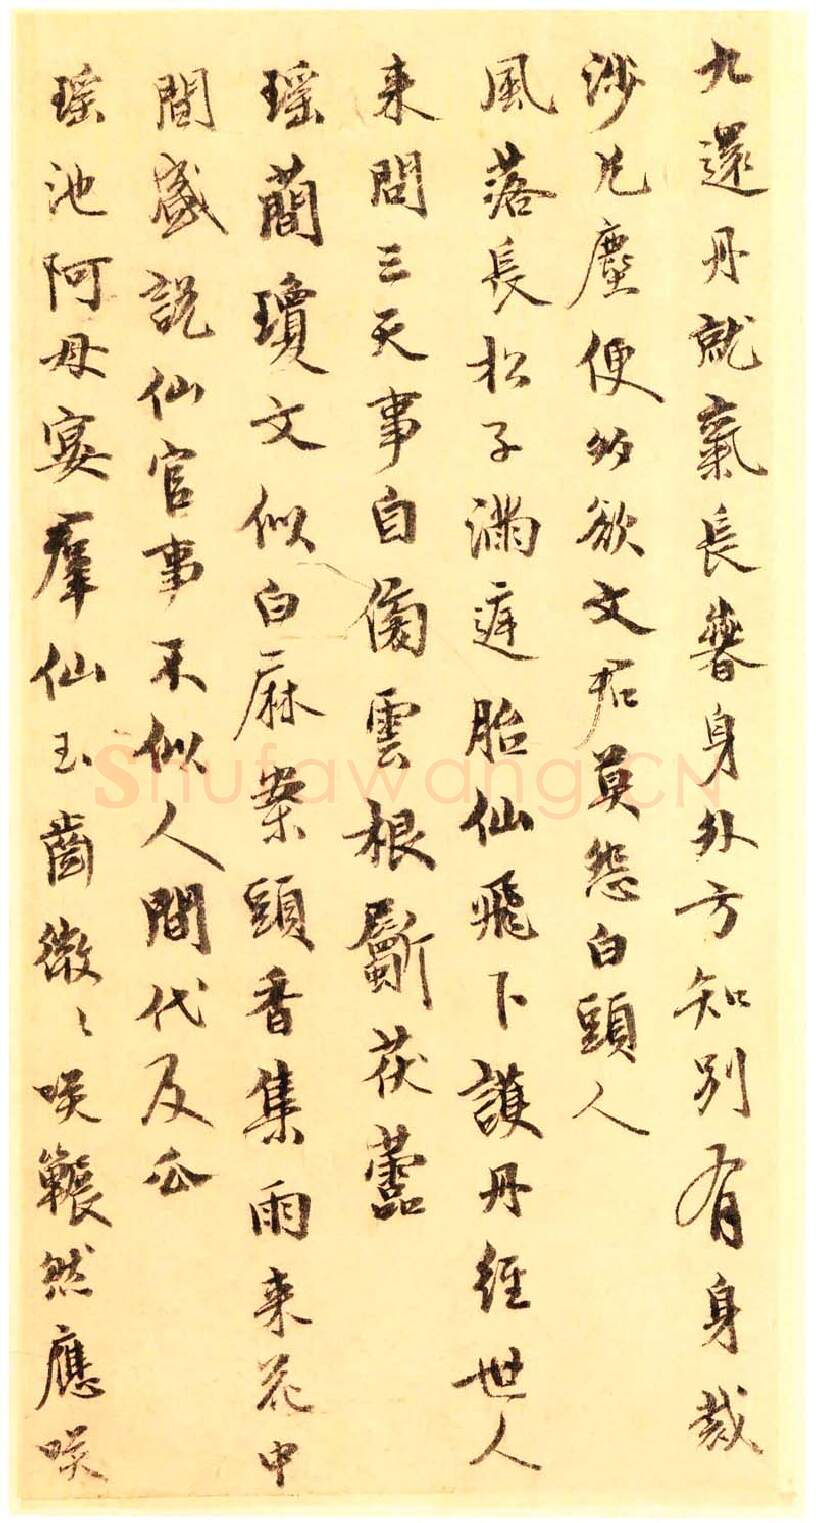 九還丹就氣長春身外方知別有身裁
涉凡塵便多欲文君莫怨白頭人
風落長松子滿庭胎仙飛下護丹經世人
来問三天事自雲根斸茯蘦
瑤蕳瓊文似白麻案頭香集雨来花中
間盛說仙官事不似人間代及瓜
瑤池阿母宴羣仙玉齒微〻咲囅然應咲
Shufawang.CN